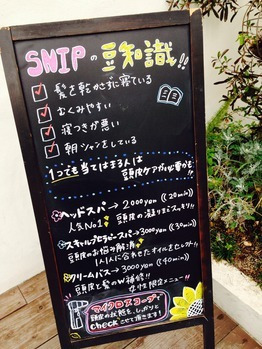 SNIPの豆知識!!
髪を乾かさずに寝ている
むくみやすい
寝つきが悪い
朝シャンをしている
1つでも当てはまる人は
頭皮ケアが必要かも!!
ヘッドスパ→2000yen (20min)
人気No.1 頭皮の凝りまでスッキリ!!
スキャルプセラピースパ→3000yen (30min)
頭皮のお悩み解消
1人1人に合わせたオイルをセット!!
クリームバス→3000yen (40min)
頭皮と髪のW補修!! 女性限定メニュー!!
マイクロスコープで
頭皮の状態を、しっかりと
checkさせて頂きます!